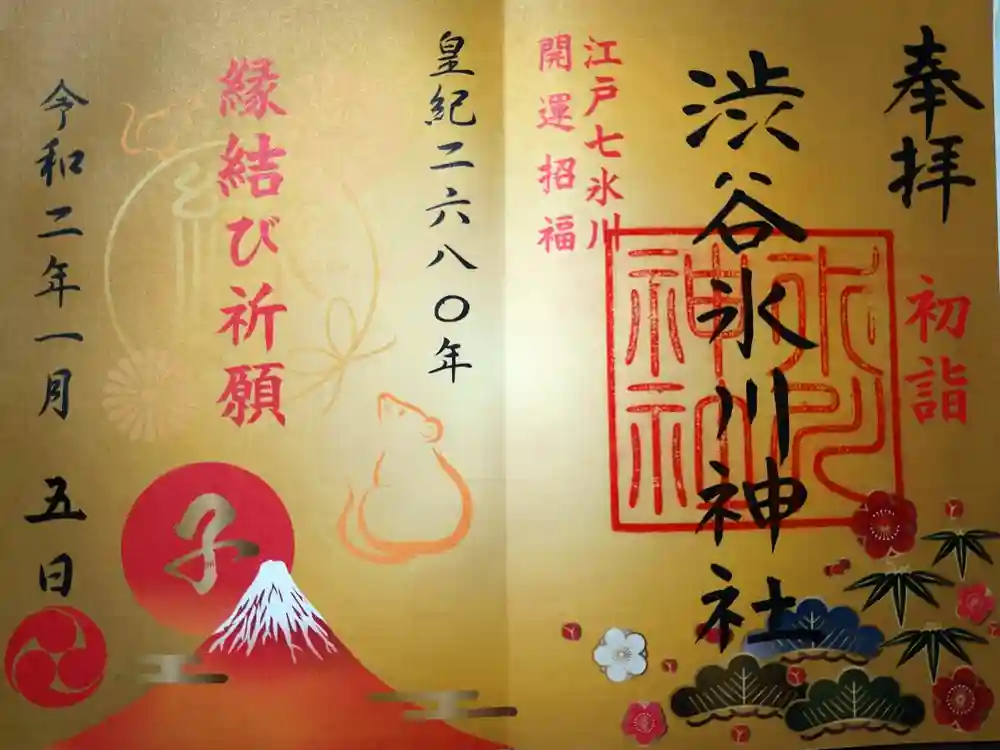 奉拝
初詣
渋谷氷川神社
氷川神社
江戸七氷川
開運招福
皇紀二六八〇年
縁結び祈願
子
令和二年一月 五日